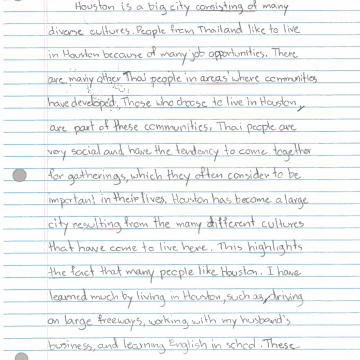 Houston is a big city consisting of many
diverse cultures. People from Thailand like to live
in Houston because of many job opportunities. There
are many other Thai people in areas where communities
have developed. Those who choose to live in Houston,
are part of these communities. Thai people are
very social and have the tendency to come together
for gatherings, which they often consider to be
important in their lives. Houston has become a large
city resulting from the many different cultures
that have come to live here. This highlights
the fact that many people like Houston. I have
learned much by living in Houston, such as driving
on large freeways, working with my husband's
business, and learning English in school. These